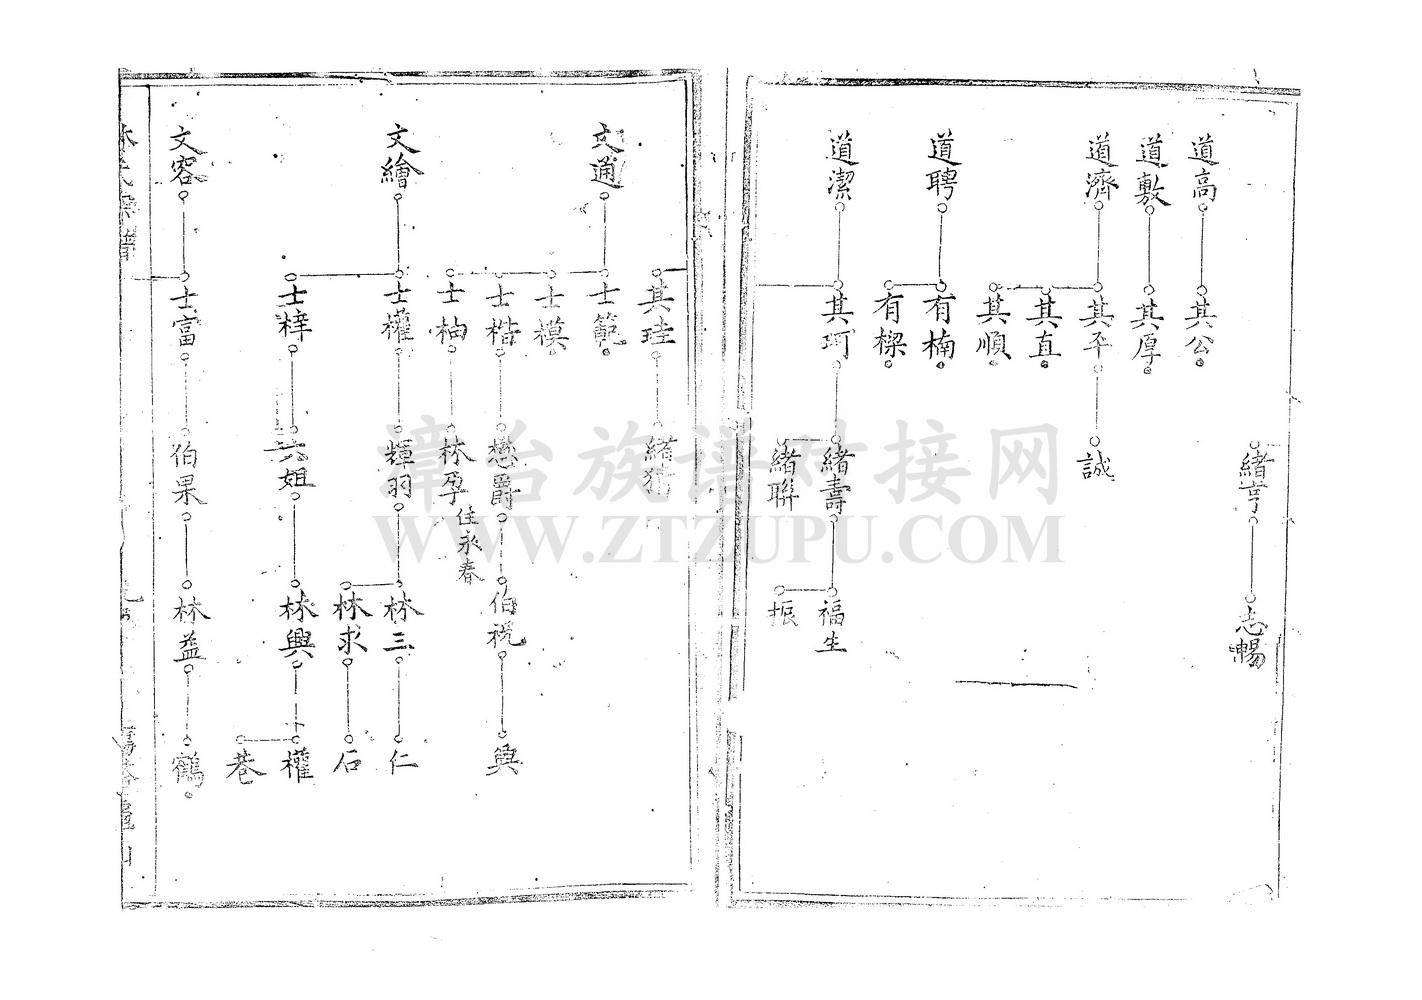 緒亨
志暢
道高
其公
道敷
其厚
道濟
其平
誠
其直
其順
道聘
有楠
有樑
道潔
其珂
緒壽
福生
振
緒聯
其珪
緒
文通
士範
士模
士楷
懋爵
伯祝
興
士柚
林孕
住永春
文繪
士權
輝羽
林三
仁
林求
石
士梓
六姐
林興
權
巷
文容
士富
伯果
林益
鶴
漳台族谱对接网
WWW.ZTZUPU.COM